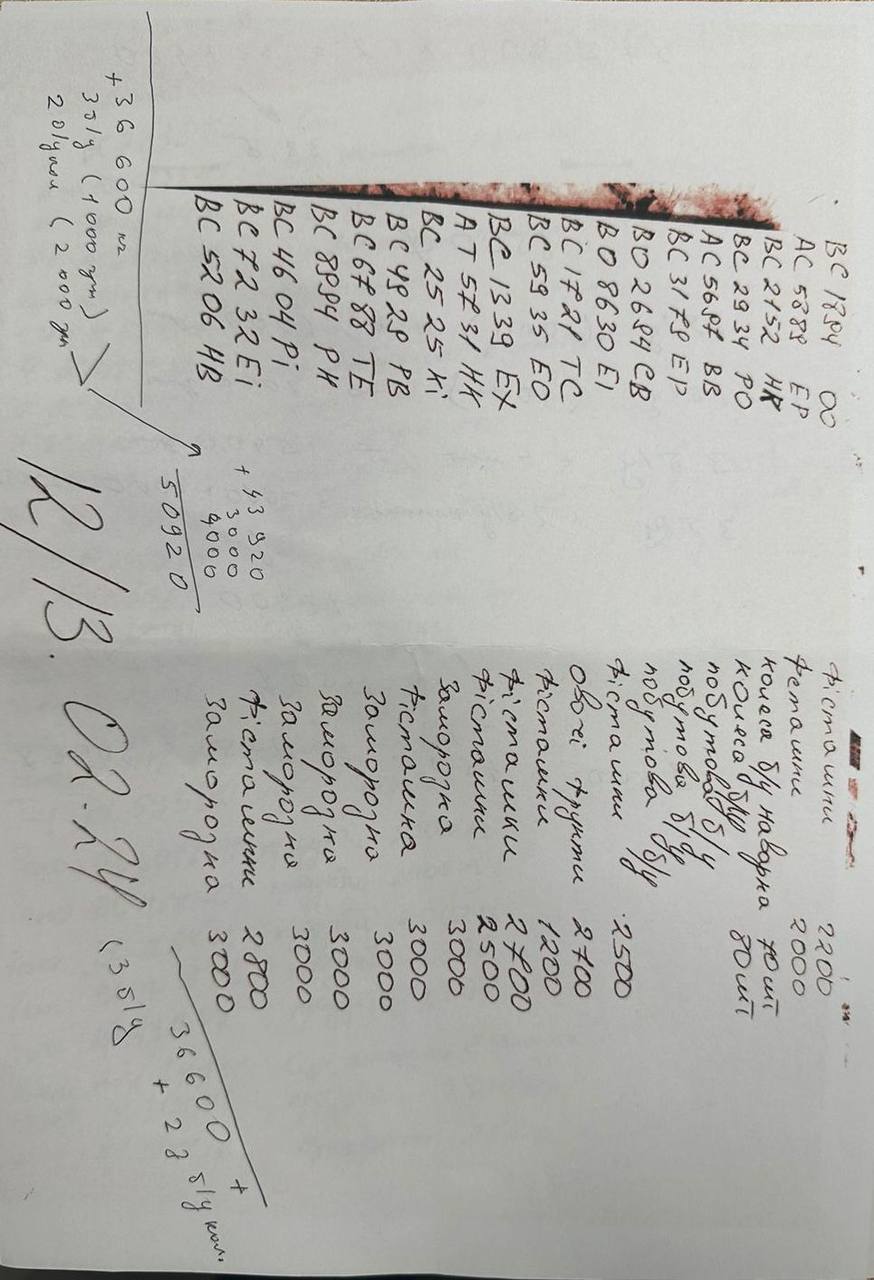 BC 1894 OO фісташки 2200
AC 5888 EP феташки 2000
BC 2152 HК колеса б/у наварка 70 шт
BC 2934 PO колеса б/у 80 шт
AC 5697 BB побутова б/у
BC 3179 EP побутова б/у
BO 2694 CB побутова б/у
BO 8630 EI фісташки 2500
BC 1721 TC овочі фрукти 2700
BC 5935 EO фісташки 1200
BC 1339 EX фісташки 2700
AT 5731 HK фісташки 2500
BC 2525 Кі заморозка 3000
BC 4929 PB фісташка 3000
BC 6788 TE заморозка 3000
BC 8994 PH заморозка 3000
BC 4604 Pi заморозка 3000
BC 7232 Ei фісташки 2800
BC 5206 HB заморозка 3000
+ 43 920
3000
4000
50920
36600 +
+ 2 з б/у
+ 36 600 кг
3 б/у (1000 грн)
2 (2000 грн
12/13. 02.24 (3 б/у